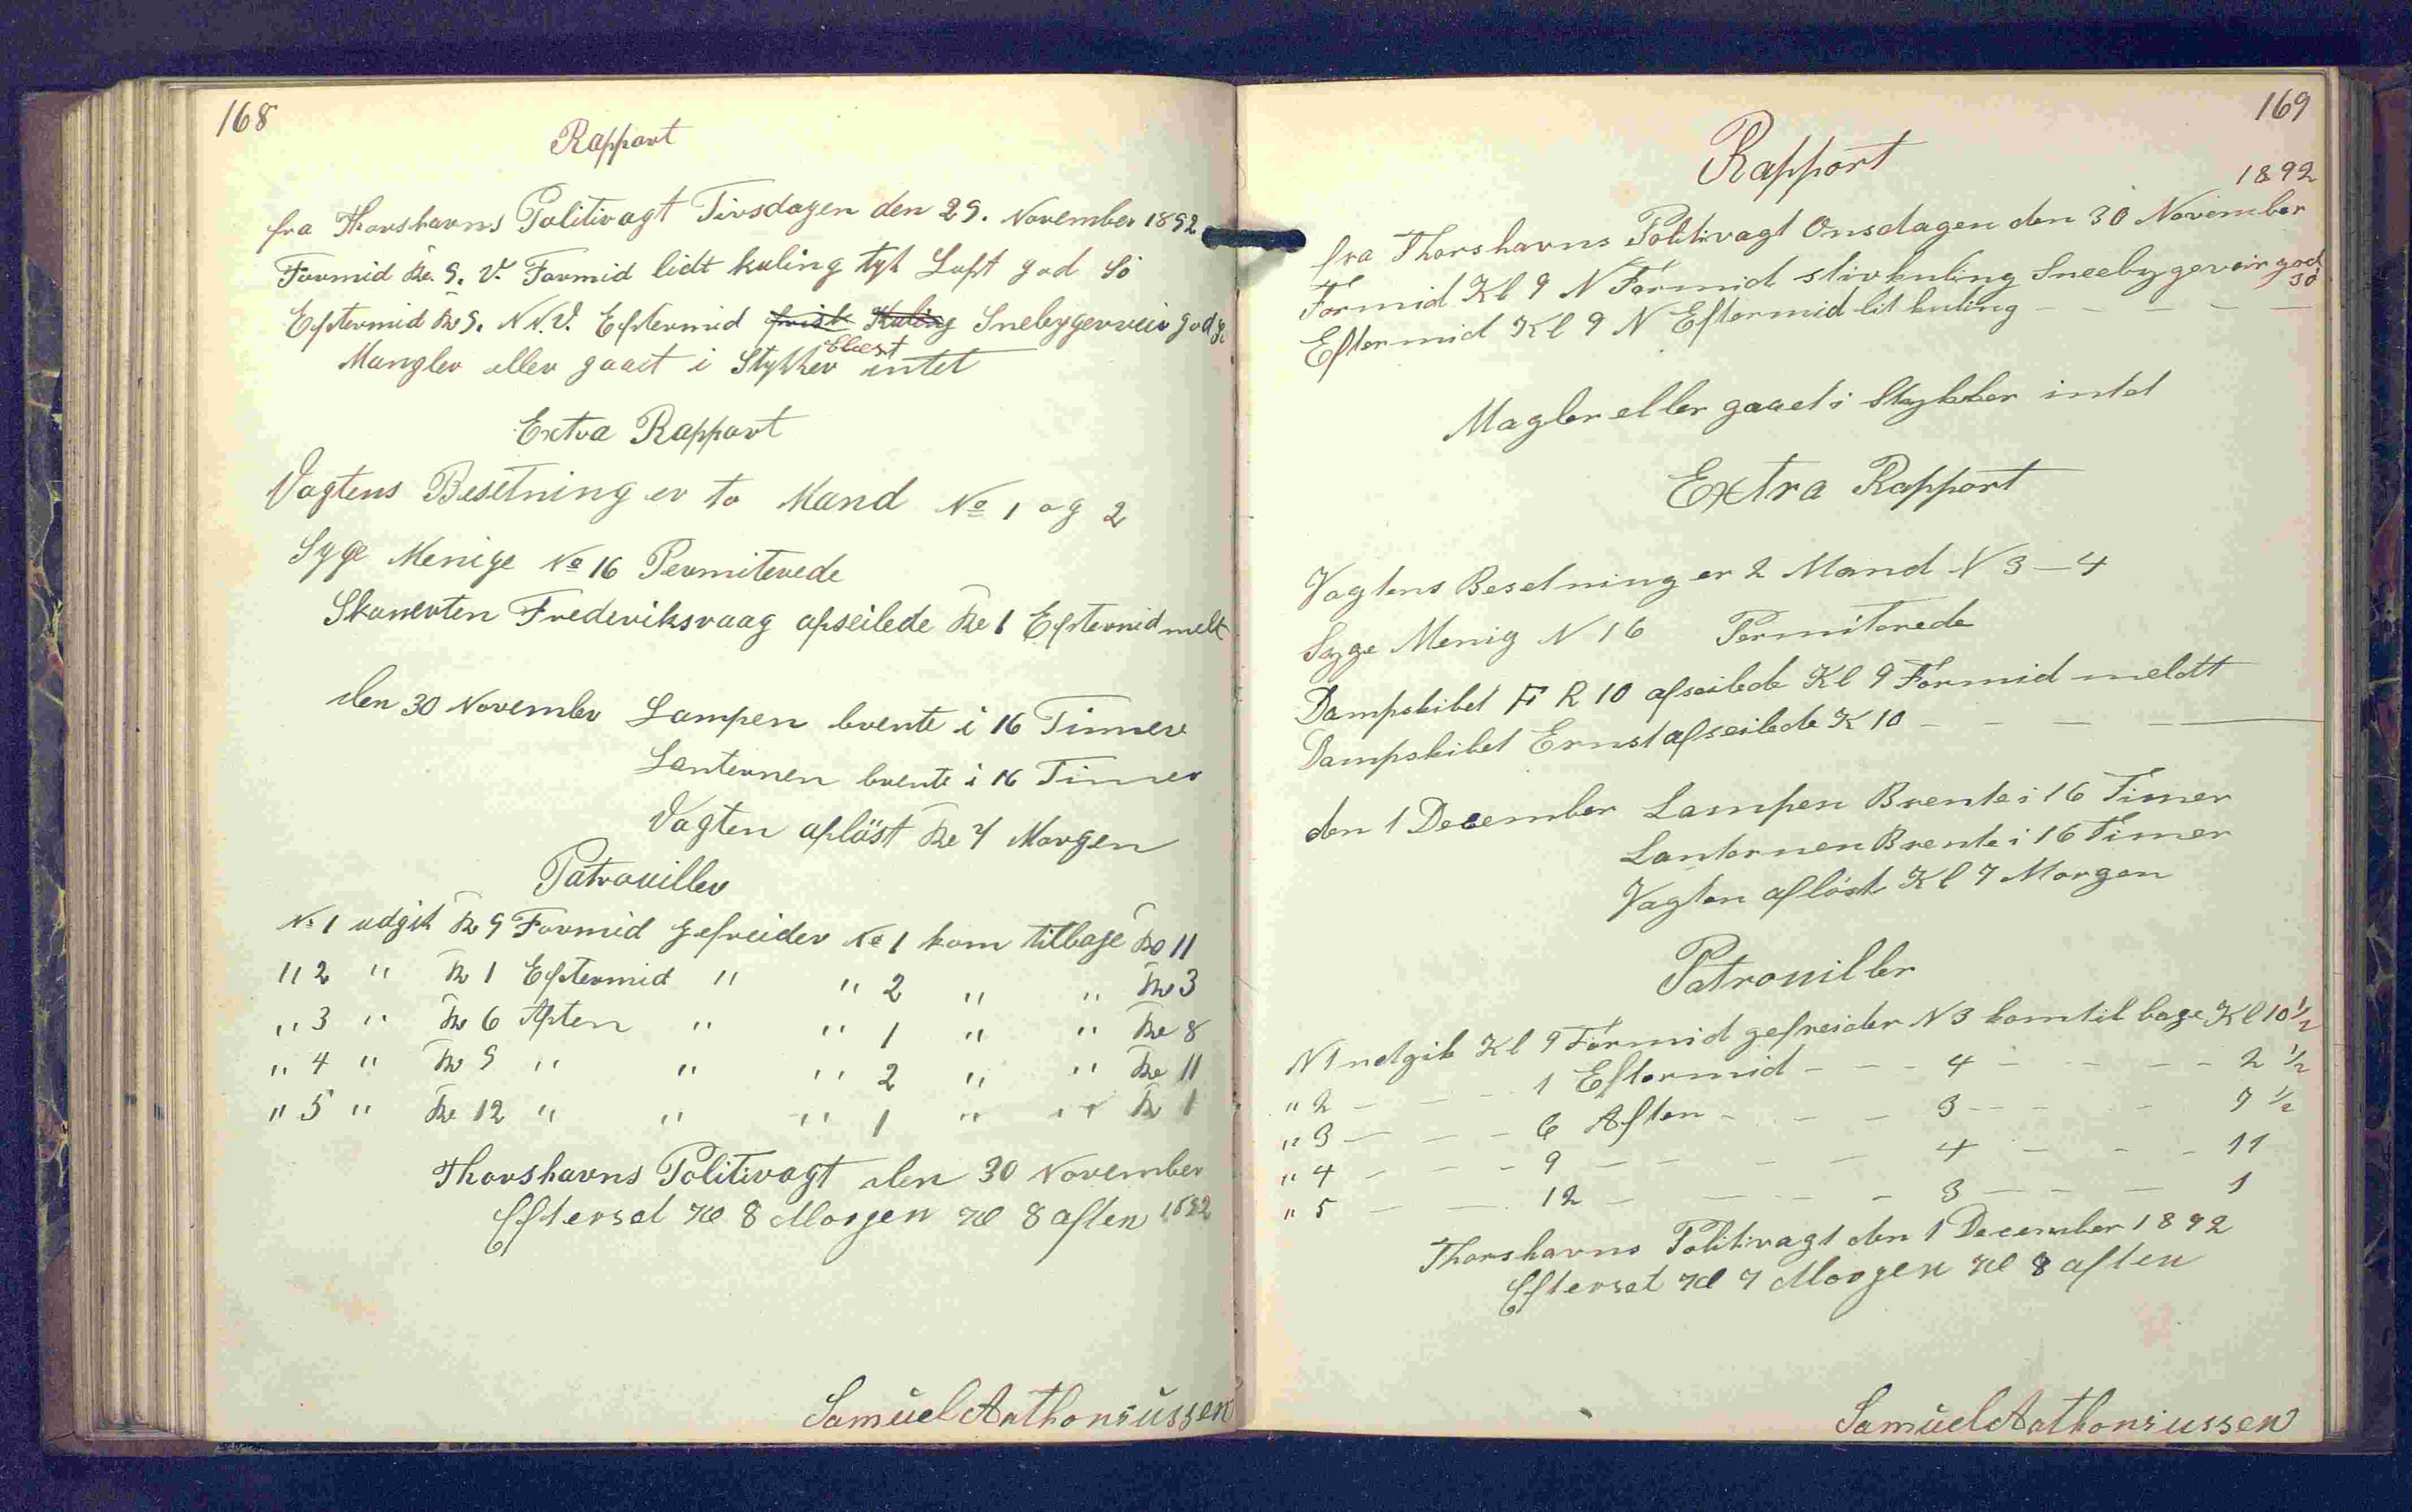 168
Rapport
fra Thorshavns Politivagt Tirsdagen den 29. November 1892
Formid Kl. 9. V. Formid lidt kuling tyk Luft god Sö
Eftermid Kl 9. N.V. Eftermid frisk Kuling Snebygerveir god Sö
Blæst
Mangler eller gaaet i Stykker intet
Extra Rapport
Vagtens Besetning er to Mand No 1 og 2
Syge Menige No 16 Permiterede
Skonerten Frederiksvaag afseilede Kl 1 Eftermid melt
den 30 November Lampen brente i 16 Timer
Lanternen brente i 16 Timer
Vagten aflöst Kl 7 Morgen
Patrouiller
No 1 udgik Kl 9 Formid gefreider No 1 kom tilbage Kl 11
" 2 " Kl 1 Eftermid " " 2 " " Kl 3
" 3 " Kl 6 Aften " " 1 " " Kl 8
" 4 " Kl 9 " " " 2 " " Kl 11
" 5 " Kl 12 " " " 1 " " Kl 1
Thorshavns Politivagt den 30 November
1892
Efterset Kl 8 Morgen Kl 8 aften
Samuel Anthoniussen
169
Rapport
1892
fra Thorshavns Politivagt Onsdagen den 30 November
Formid Kl 9 N Formid stivkuling Sneebygeveir god
Sö
Eftermid Kl 9 N Eftermid lit kuling - - - -
Magler eller gaaet i Stykker intet
Extra Rapport
Vagtens Besetning er 2 Mand N 3 - 4
Syge Menig N 16 Permiterede
Dampskibet F R 10 afseilede Kl 9 Formid meldt
Dampskibet Ernst afseilede K 10 - - - -
den 1 December Lampen Brente i 16 Timer
Lanternen Brente i 16 Timer
Vagten afløst Kl 7 Morgen
Patrouiller
N 1 udgik Kl 9 Formid gefreider N 3 kom tilbage Kl 10 1/2
" 2 - - - 1 Eftermid - - - 4 - - - - 2 1/2
" 3 - - - 6 Aften - - - 3 - - - 7 1/2
" 4 - - - 9 - - - - 4 - - - 11
" 5 - - 12 - - - - 3 - - - 1
Thorshavns Politivagt den 1 December 1892
Efterset Kl 7 Morgen Kl 8 aften
Samuel Anthoniussen